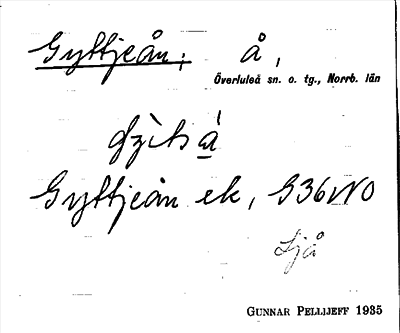 Gyttjeån; å,
Överluleå sn. o. tg., Norrb. län
Gyttjeån ek, S36NO
Sjå
GUNNAR PELLIJEFF 1935